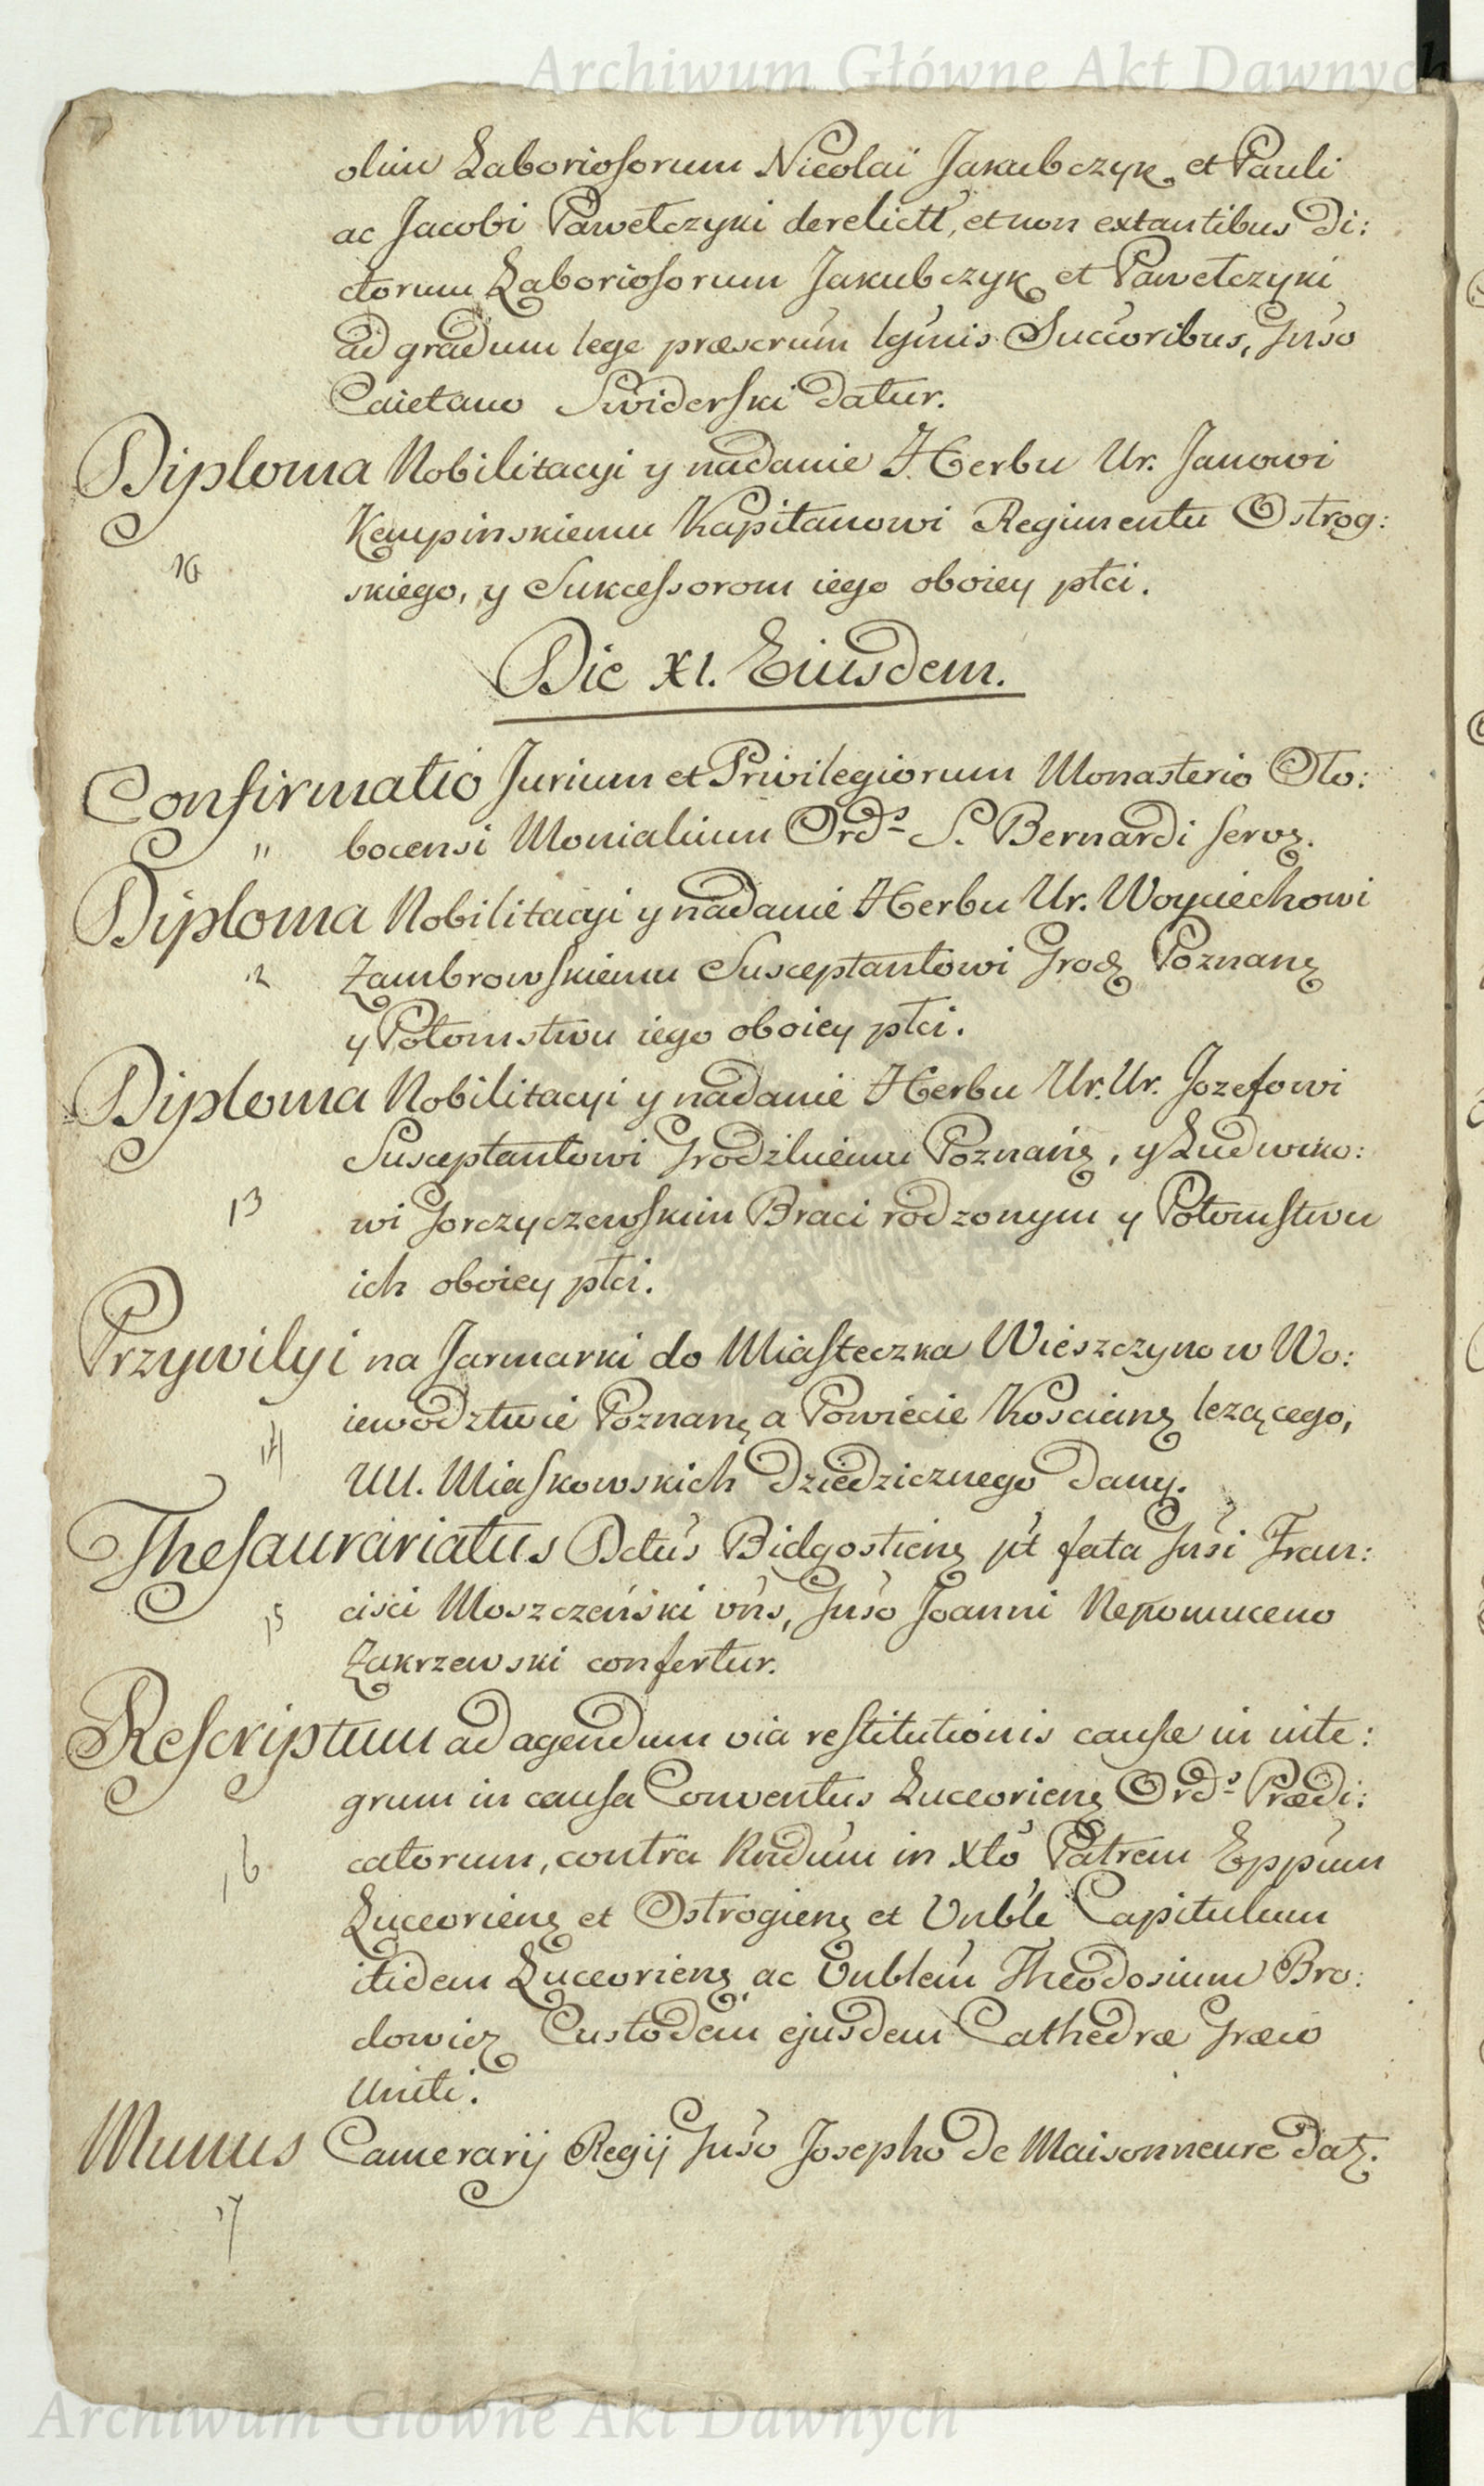 Archiwum Główne Akt Dawnych
olim Laboriosorum Nicolai Jakubczyk et Pauli
ac Jacobi Pawełczyki derelicti, et non extantibus Di:
ctorum Laboriosorum Jakubczyk et Pawełczyki
ad gradum lege præscrum lgmis Succoribus, Gnso
Caietano Swiderski datur.
Diploma Nobilitacyi y nadanie Herbu Ur. Janowi
Kempinskiemu Kapitanowi Regimentu Ostrog:
10
skiego, y Sukcessorom iego oboiey płci.
Die XI. Eiusdem.
Confirmatio Jurium et Privilegiorum Monasterio Oło:
11 bocensi Monialium Ords S. Bernardi servz.
Diploma Nobilitacyi y nadanie Herbu Ur. Woyciechowi
12 Zambrowskiemu Susceptantowi Grodz Poznanz
y Potomstwu iego oboiey płci.
Diploma Nobilitacyi y nadanie Herbu Ur. Ur. Jozefowi
Susceptantowi Grodzkiemu Poznanz, y Ludwiko:
13 wi Gorczyczewskim Braci rodzonym y Potomstwu
ich oboiey płci.
Przywilyi na Jarmarki do Miasteczka Wieszczyno w Wo:
iewodztwie Poznanz a Powiecie Koscienz lezącego,
14
UU. Miaskowskich dziedzicznego dany.
Thesaurariatus Dctus Bidgosticnz pt fata Gnsi Fran:
15 cisci Moszczeński vns, Gnso Joanni Nepomuceno
Zakrzewski confertur.
Rescriptum ad agendum via restitutionis causæ in inte:
grum in causa Conventus Luceorienz Ords Prædi:
16 catorum, contra Rndum in Xto Patrem Eppum
Luceorienz et Ostrogienz et Vnble Capitulum
itidem Luceorienz ac Vnblem Theodosium Bro:
dowicz Custodem ejusdem Cathedræ Græco
Uniti.
Munus Camerarij Regij Gnso Josepho de Maisonneure datz.
17
Archiwum Główne Akt Dawnych